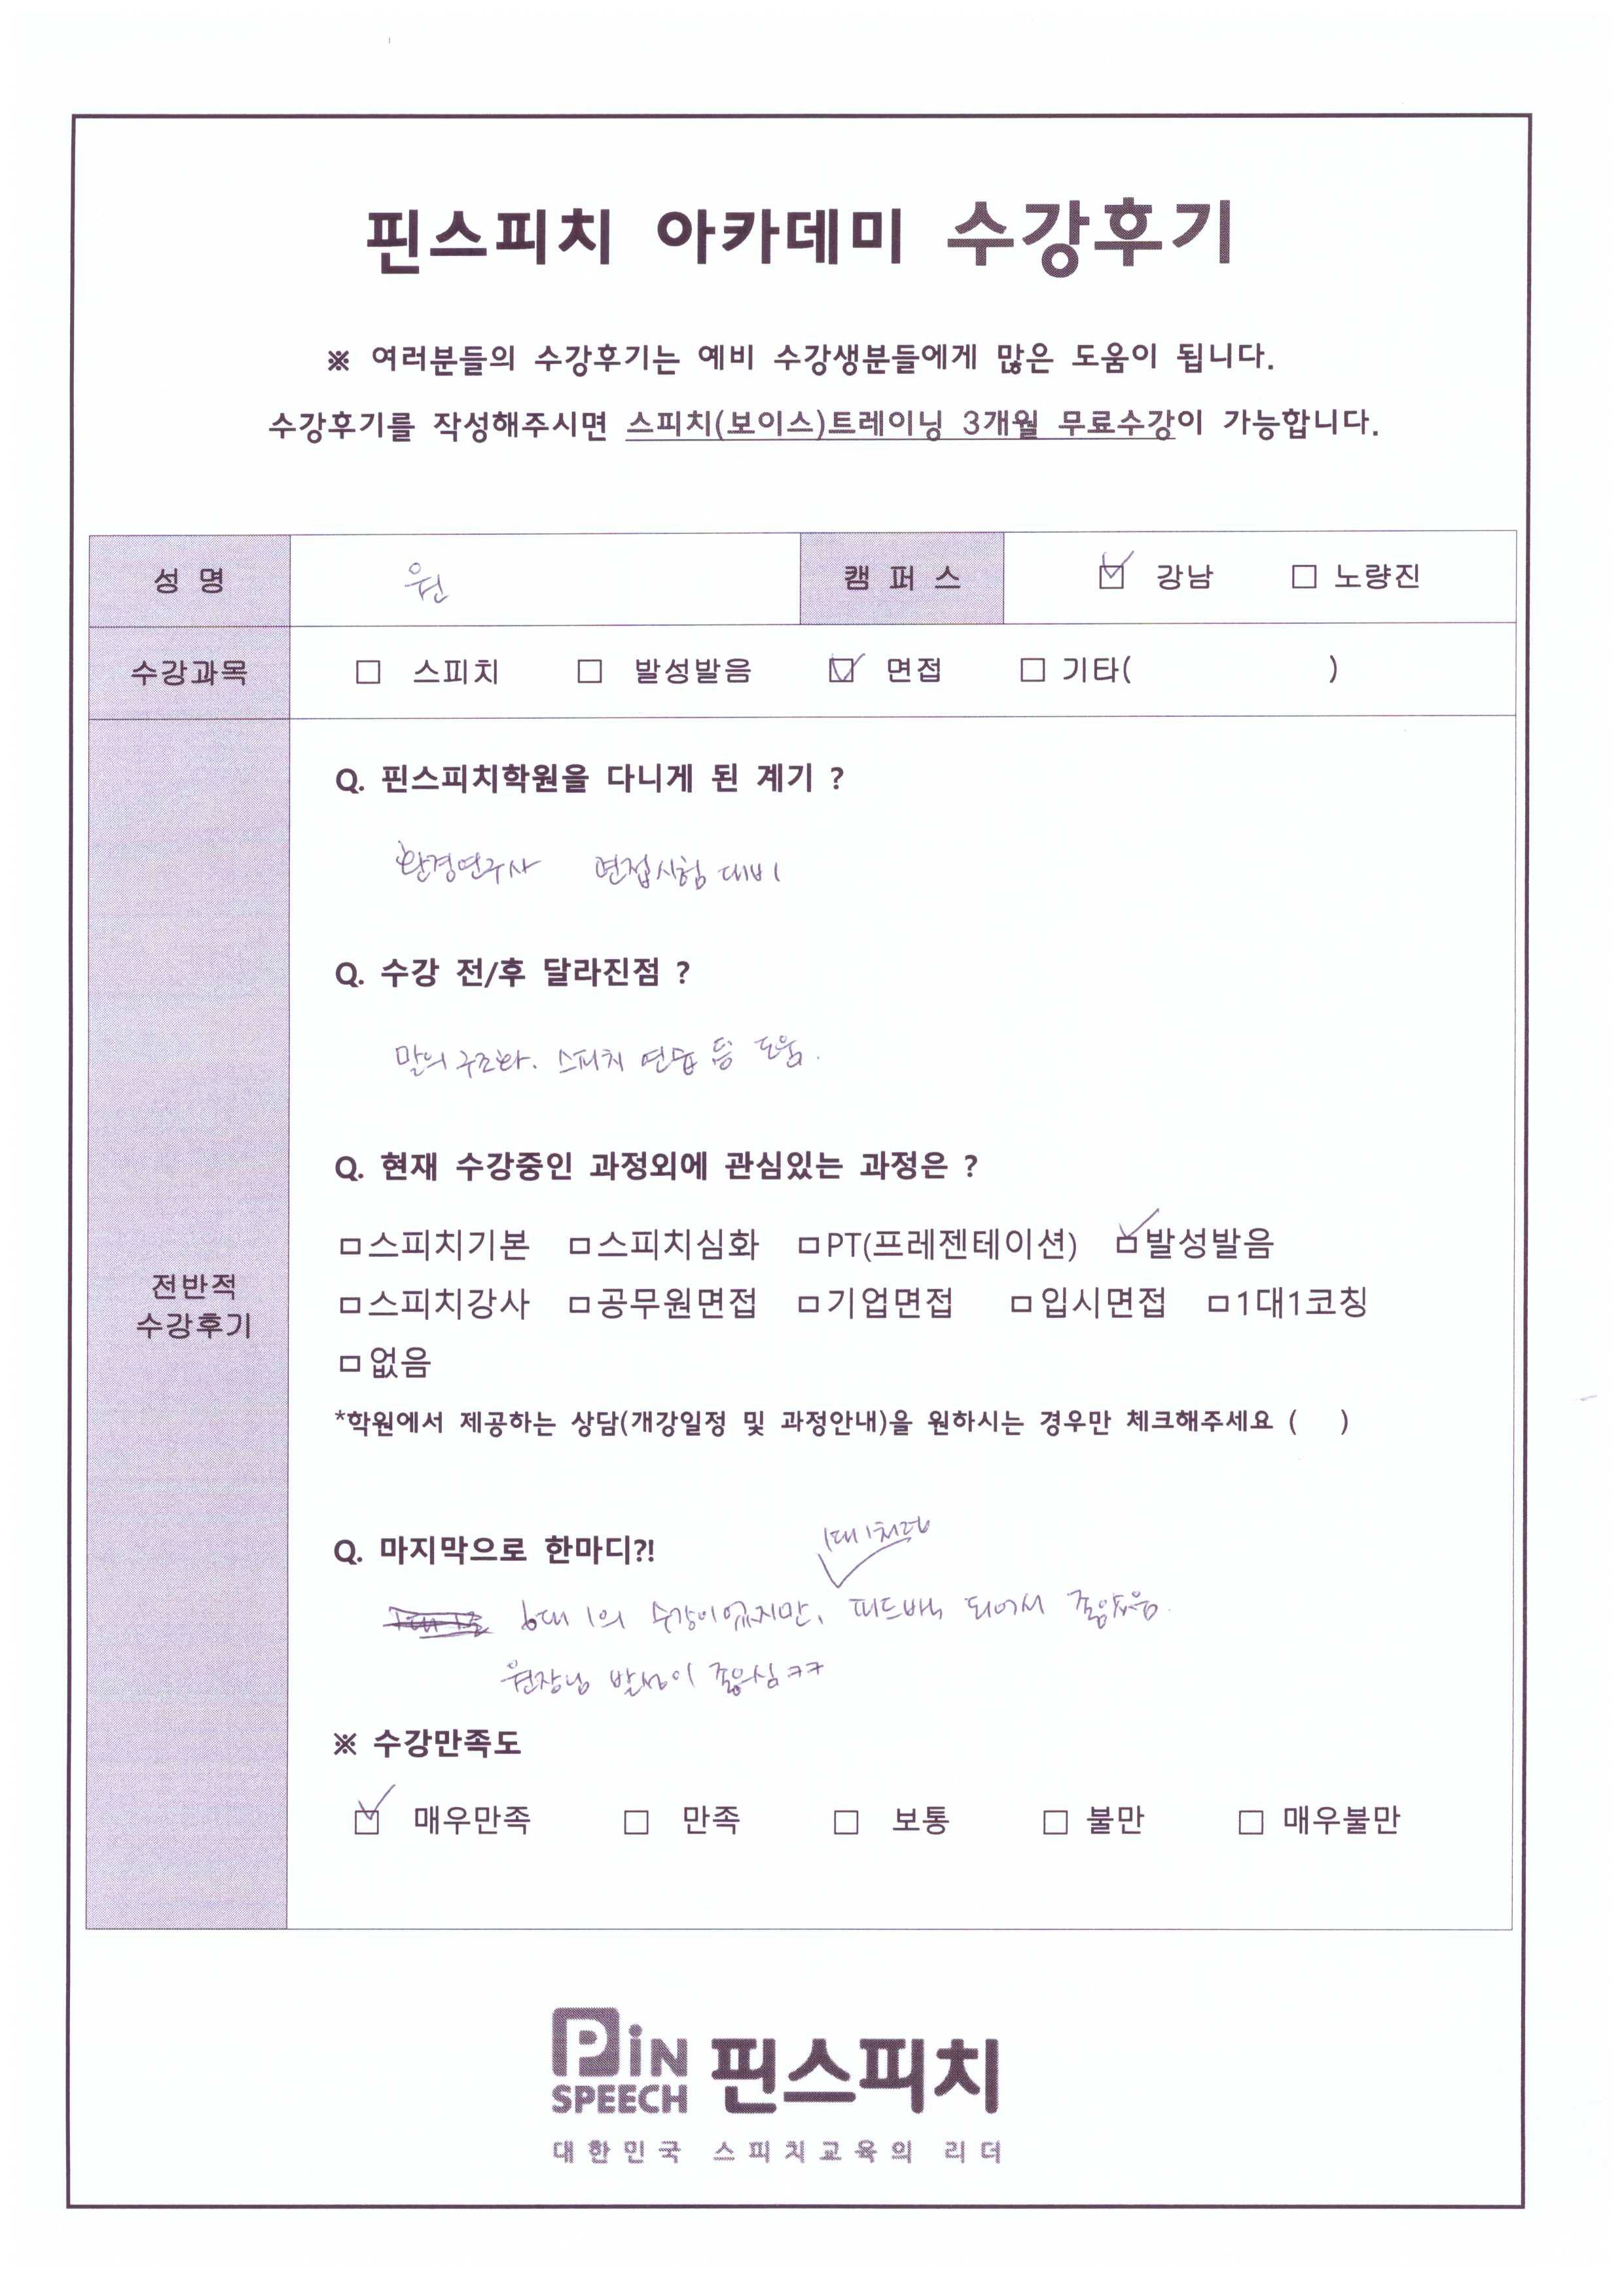 핀스피치 아카데미 수강후기
※ 여러분들의 수강후기는 예비 수강생분들에게 많은 도움이 됩니다.
수강후기를 작성해주시면 스피치(보이스)트레이닝 3개월 무료수강이 가능합니다.
성 명 원 캠 퍼 스 ☑ 강남 □ 노량진
수강과목 □ 스피치 □ 발성발음 ☑ 면접 □ 기타( )
Q. 핀스피치학원을 다니게 된 계기 ?
환경연구사 면접시험 대비
Q. 수강 전/후 달라진점 ?
말의 구조화. 스피치 연습 등 도움.
Q. 현재 수강중인 과정외에 관심있는 과정은 ?
□스피치기본 □스피치심화 □PT(프레젠테이션) ☑발성발음
□스피치강사 □공무원면접 □기업면접 □입시면접 □1대1코칭
□없음
*학원에서 제공하는 상담(개강일정 및 과정안내)을 원하시는 경우만 체크해주세요 ( )
전반적
수강후기
Q. 마지막으로 한마디?!
1대1처럼
6대 1의 수강이었지만, 피드백 되어서 좋았음.
원장님 발성이 좋으심 ㅋㅋ
※ 수강만족도
☑ 매우만족 □ 만족 □ 보통 □ 불만 □ 매우불만
PiN
SPEECH
핀스피치
대한민국 스피치교육의 리더